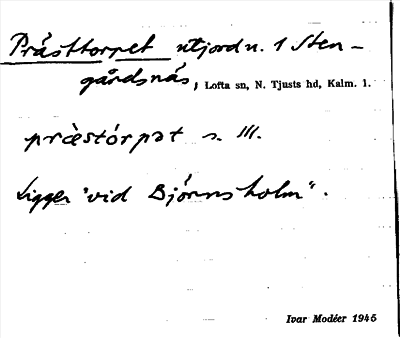 Prästtorpet utjord u. 1 Sten-
gårdsnäs, Lofta sn, N. Tjusts hd, Kalm. l.
præ̀stórpət n. III.
Ligger "vid Björnsholm".
Ivar Modéer 1945